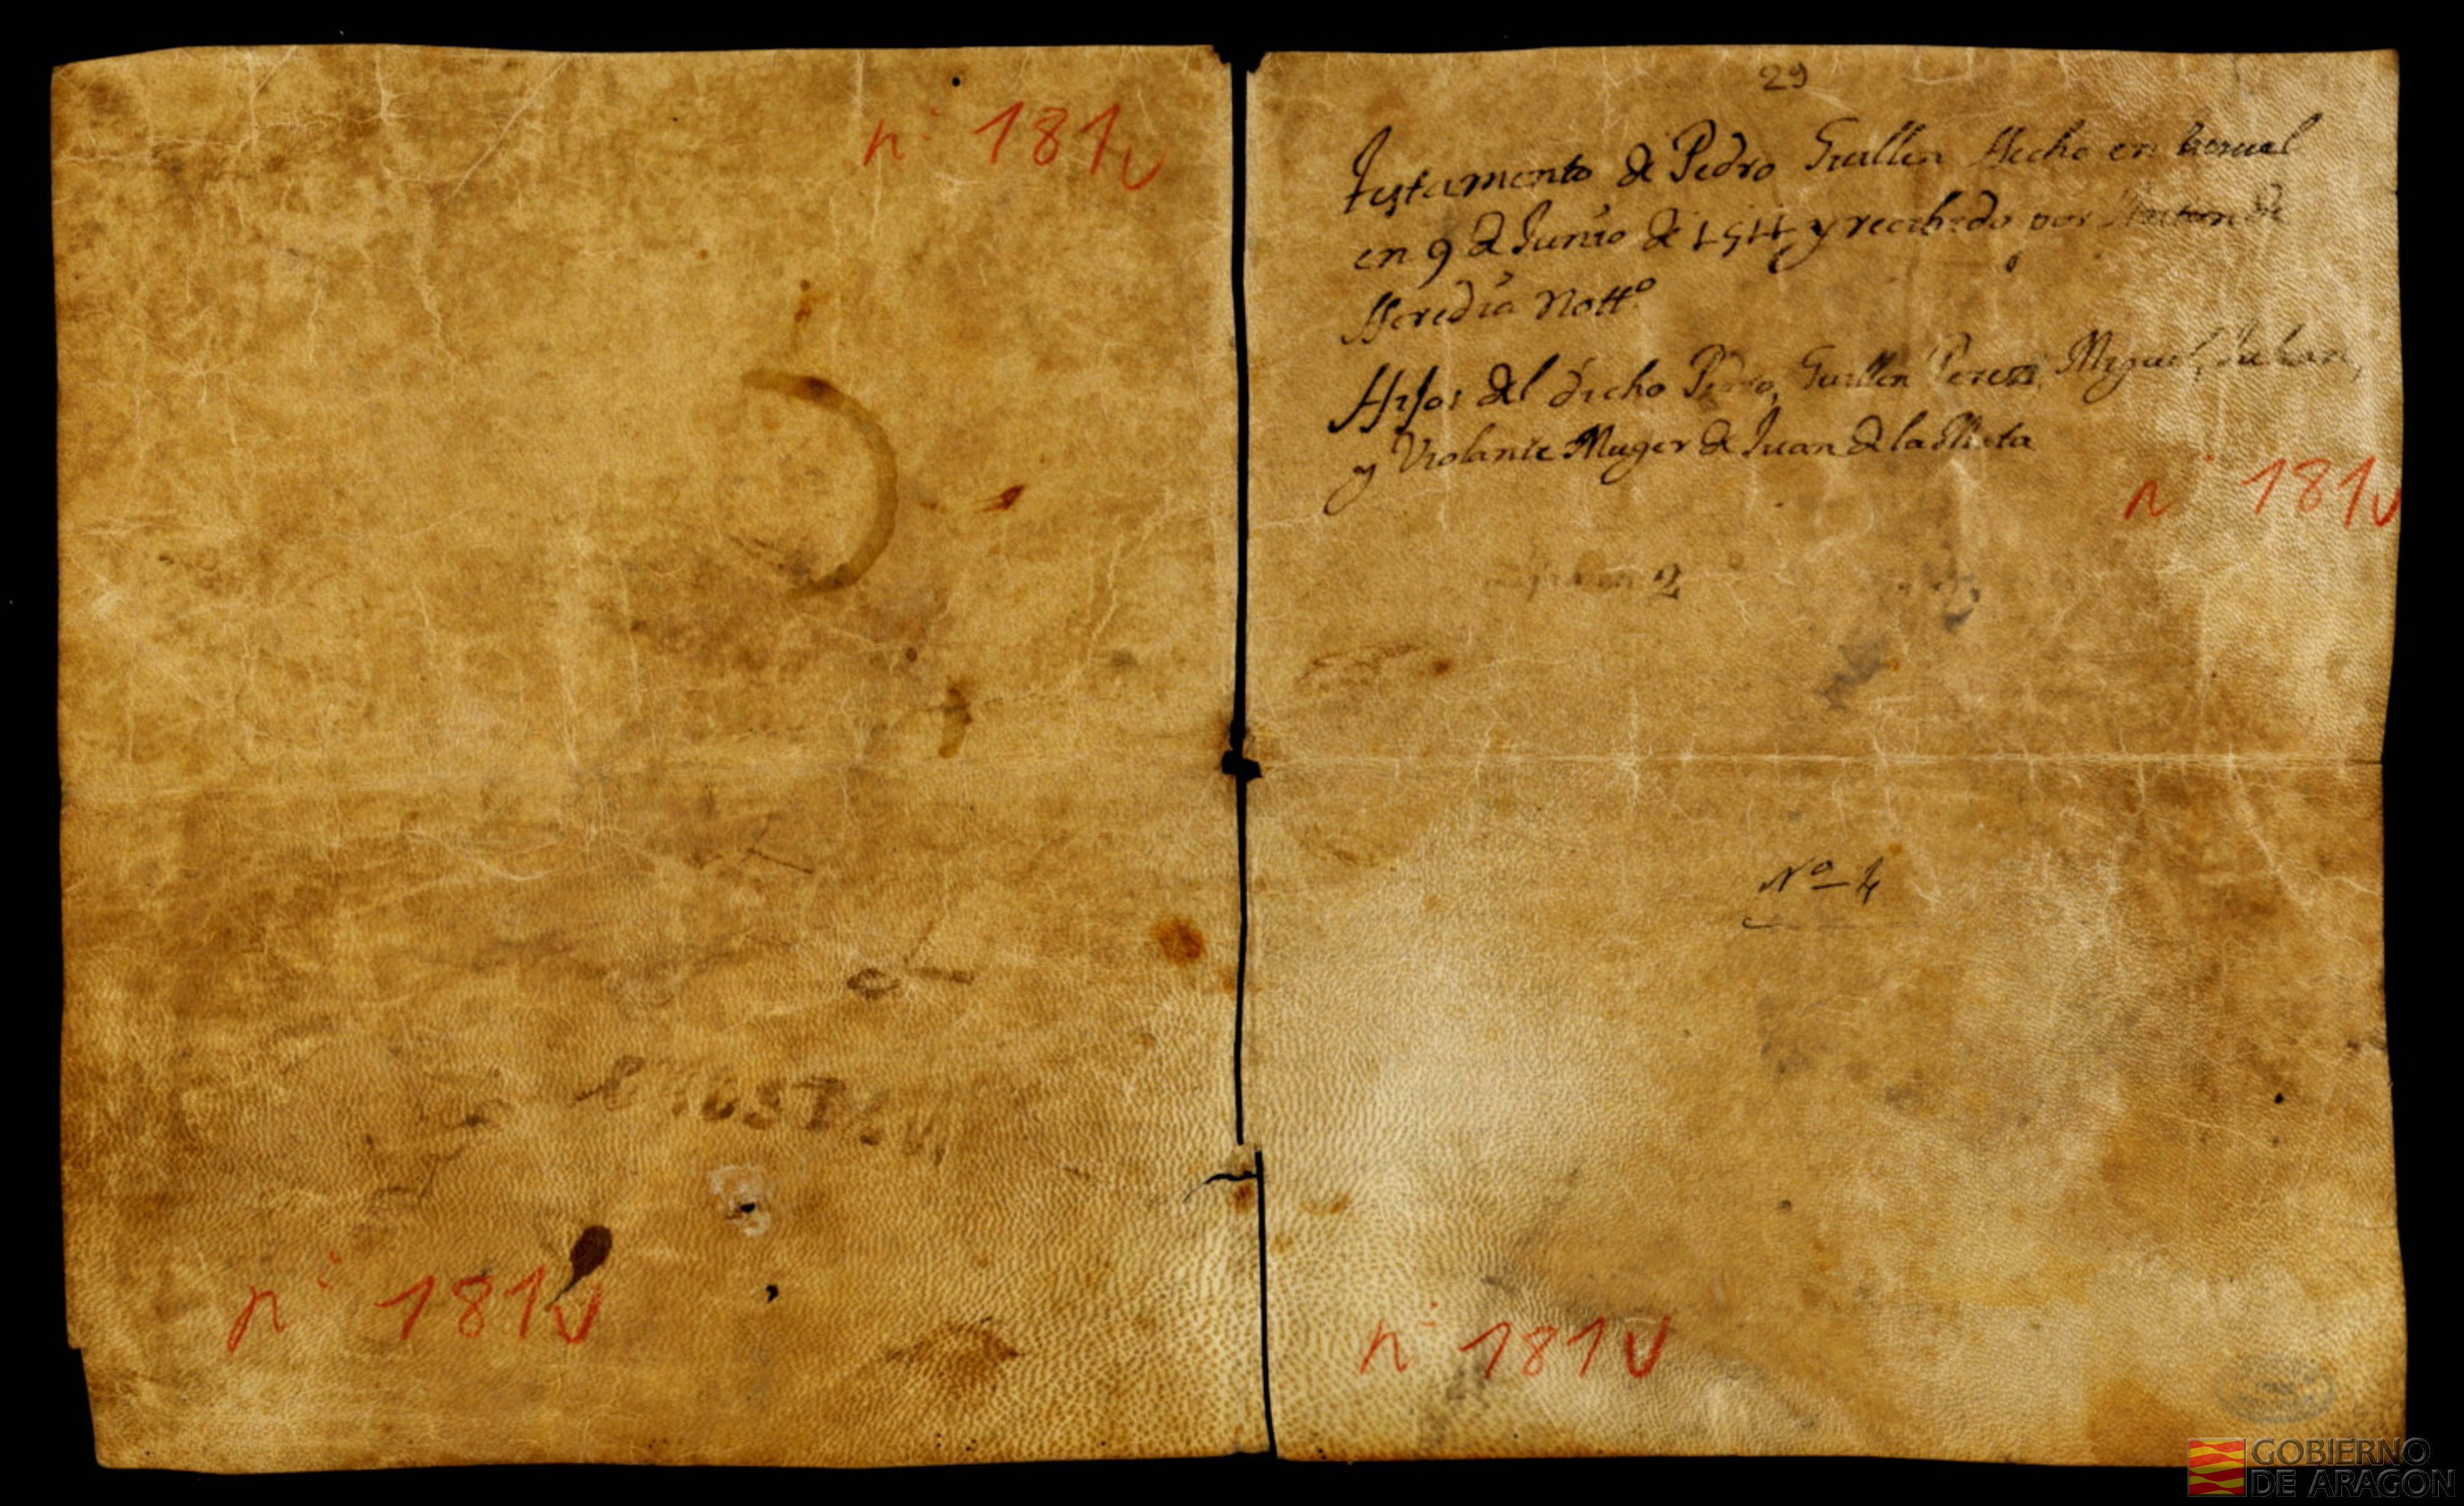 nº 181v
nº 181v
29
Testamento de Pedro Guillen Hecho en teruel
en 9 de Junio de 1511 y recibido por Anton de
Heredia Nottº
Hijos del dicho Pedro, Guillen Perez, Miguel, Julian,
y Violante Muger de Juan de la Mata
nº 181v
2
Nº 4
nº 181v
GOBIERNO
DE ARAGON